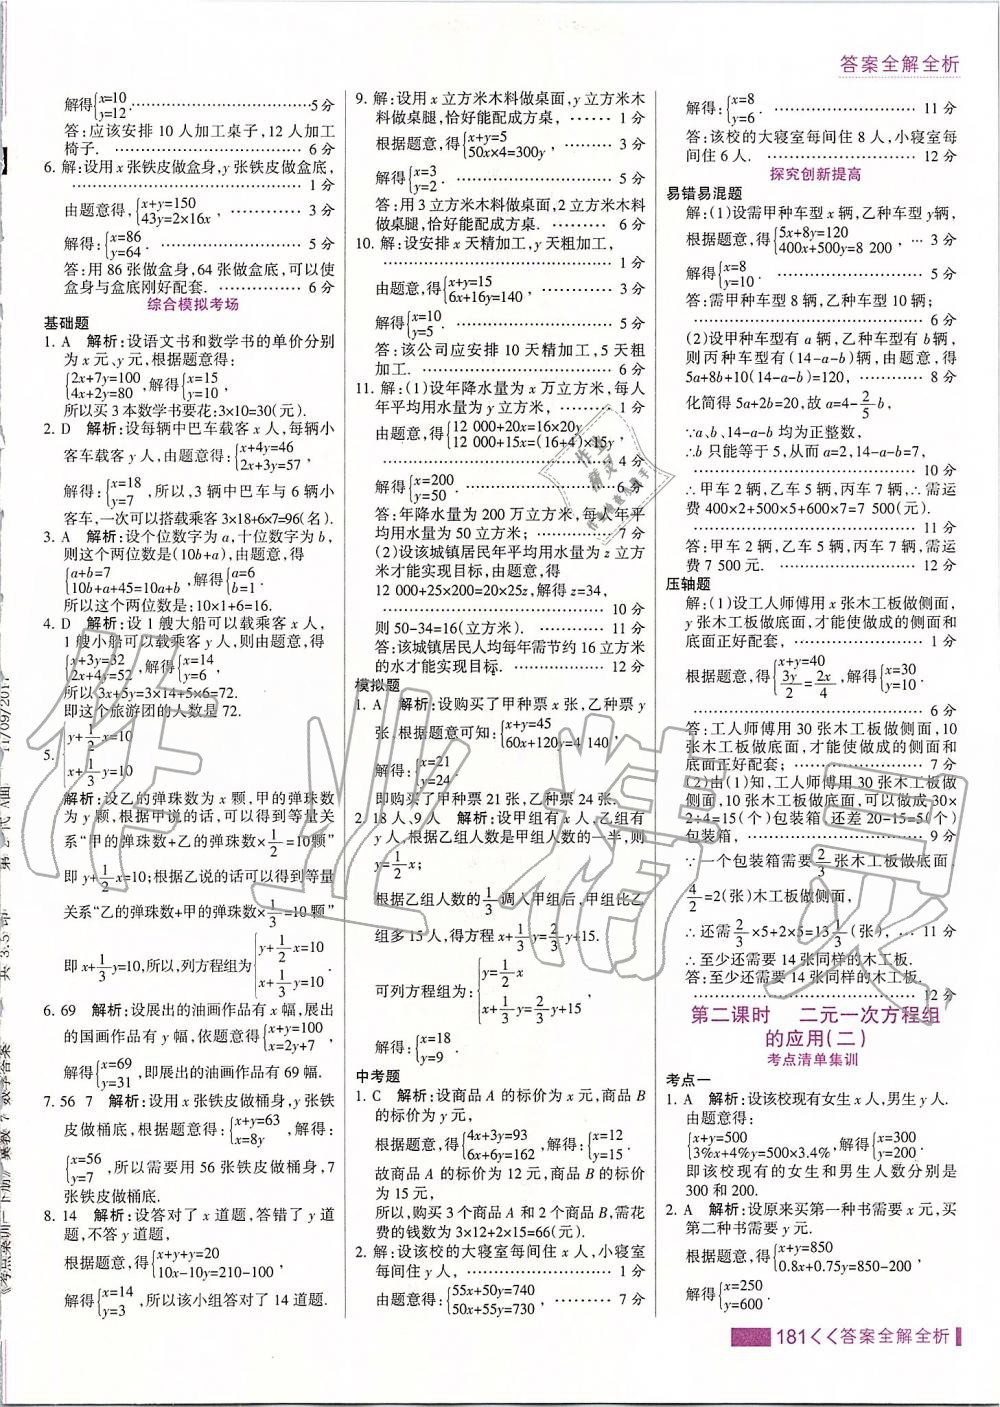 答案全解全析
解得{x=10 y=12 ……5分
答:应该安排 10 人加工桌子,12 人加工
椅子. ……6分
6. 解:设用 x 张铁皮做盒身,y 张铁皮做盒底,
……1分
由题意得,{x+y=150 43y=2×16x, ……3分
解得:{x=86 y=64. ……5分
答:用 86 张做盒身,64 张做盒底,可以使
盒身与盒底刚好配套. ……6分
综合模拟考场
基础题
1. A 解析:设语文书和数学书的单价分别
为 x 元、y 元,根据题意得:
{2x+7y=100 4x+2y=80,解得{x=15 y=10,
所以买 3 本数学书要花:3×10=30(元).
2. D 解析:设每辆中巴车载客 x 人,每辆小
客车载客 y 人,由题意得{x+4y=46 2x+3y=57,
解得:{x=18 y=7,所以,3 辆中巴车与 6 辆小
客车,一次可以搭载乘客 3×18+6×7=96(名).
3. A 解析:设个位数字为 a,十位数字为 b,
则这个两位数是(10b+a),由题意,得
{a+b=7 10b+a+45=10a+b,解得{a=6 b=1.
所以这个两位数是:10×1+6=16.
4. D 解析:设 1 艘大船可以载乘客 x 人,
1 艘小船可以载乘客 y 人,则由题意,得
{x+3y=32 2x+4y=52,解得{x=14 y=6,
所以 3x+5y=3×14+5×6=72.
即这个旅游团的人数是 72.
5. {y+1/2 x=10 x+1/3 y=10
解析:设乙的弹珠数为 x 颗,甲的弹珠数
为 y 颗,根据甲说的话,可以得到等量关
系“甲的弹珠数+乙的弹珠数×1/2=10颗”
即 y+1/2 x=10;根据乙说的话可以得到等量
关系“乙的弹珠数+甲的弹珠数×1/3=10 颗”
即 x+1/3 y=10,所以,列方程组为{y+1/2 x=10 x+1/3 y=10.
6. 69 解析:设展出的油画作品有 x 幅,展出
的国画作品有 y 幅,依题意得{x+y=100 x=2y+7,
解得{x=69 y=31,即展出的油画作品有 69 幅.
7. 56 7 解析:设用 x 张铁皮做桶身,y 张铁
皮做桶底,根据题意得:{x+y=63 x=8y,解得:
{x=56 y=7,所以需要用 56 张铁皮做桶身,7
张铁皮做桶底.
8. 14 解析:设答对了 x 道题,答错了 y 道
题,不答 y 道题,
根据题意,得{x+y+y=20 10x-10-y=210,
解得{x=14 y=3,所以该小组答对了 14 道题.
9. 解:设用 x 立方米木料做桌面,y 立方米木
料做桌腿,恰好能配成方桌, ……1分
根据题意,得{x+y=5 50x×4=300y, ……3分
解得{x=3 y=2. ……5分
答:用 3 立方米木料做桌面,2 立方米木料
做桌腿,恰好能配成方桌. ……6分
10. 解:设安排 x 天精加工,y 天粗加工,
……1分
由题意,得{x+y=15 6x+16y=140, ……3分
解得{x=10 y=5. ……5分
答:该公司应安排 10 天精加工,5 天粗
加工. ……6分
11. 解:(1)设年降水量为 x 万立方米,每人
年平均用水量为 y 立方米, ……1分
由题意,得{12 000+20x=16×20y 12 000+15x=(16+4)×15y,
……4分
解得{x=200 y=50. ……6分
答:年降水量为 200 万立方米,每人年平
均用水量为 50 立方米; ……7分
(2)设该城镇居民年平均用水量为 z 立方
米才能实现目标,由题意,得
12 000+25×200=20×25z,解得 z=34,
……10分
则 50-34=16(立方米). ……11分
答:该城镇居民人均每年需节约 16 立方米
的水才能实现目标. ……12分
模拟题
1. A 解析:设购买了甲种票 x 张,乙种票 y
张.根据题意可知:{x+y=45 60x+120y=4 140,
解得:{x=21 y=24.
即购买了甲种票 21 张,乙种票 24 张.
2. 18人、9人 解析:设甲组有 x 人,乙组有
y 人,根据乙组人数是甲组人数的一半,则
y=1/2 x;
根据乙组人数的1/3调入甲组后,甲组比乙
组多 15 人,得方程 x+1/3 y=2/3 y+15.
可列方程组为:{y=1/2 x x+1/3 y=2/3 y+15,
解得:{x=18 y=9.
中考题
1. C 解析:设商品 A 的标价为 x 元,商品 B
的标价为 y 元,
根据题意,得{4x+3y=93 6x+6y=162,解得:{x=12 y=15.
故商品 A 的标价为 12 元,商品 B 的标价
为 15 元,
所以,购买 3 个商品 A 和 2 个商品 B,需花
费的钱数为 3×12+2×15=66(元).
2. 解:设该校的大寝室每间住 x 人,小寝室
每间住 y 人, ……1分
由题意得:{55x+50y=740 50x+55y=730, ……7分
解得:{x=8 y=6. ……11分
答:该校的大寝室每间住 8 人,小寝室每
间住 6 人. ……12分
探究创新提高
易错易混题
解:(1)设需甲种车型 x 辆,乙种车型 y辆,
根据题意,得{5x+8y=120 400x+500y=8 200, …3分
解得{x=8 y=10. ……5分
答:需甲种车型 8 辆,乙种车型 10 辆;
……6分
(2)设甲种车型有 a 辆,乙种车型有 b辆,
则丙种车型有(14-a-b)辆,由题意,得
5a+8b+10(14-a-b)=120, ……8分
化简得 5a+2b=20,故 a=4-2/5 b,
∵a、b、14-a-b 均为正整数,
∴b 只能等于 5,从而 a=2,14-a-b=7,
……10分
∴甲车 2 辆,乙车 5 辆,丙车 7 辆,∴需运
费 400×2+500×5+600×7=7 500(元).
……11分
答:甲车 2 辆,乙车 5 辆,丙车 7 辆,需运
费 7 500 元. ……12分
压轴题
解:(1)设工人师傅用 x 张木工板做侧面,
y 张木工板做底面,才能使做成的侧面和
底面正好配套, ……1分
{x+y=40 3y/2=2x/4,解得{x=30 y=10.
……6分
答:工人师傅用 30 张木工板做侧面,10
张木工板做底面,才能使做成的侧面和
底面正好配套; ……7分
(2)由(1)知,工人师傅用 30 张木工板做
侧面,10 张木工板做底面,可以做成 30×
2÷4=15(个)包装箱 还差 20-15=5(个)
包装箱, ……9分
∵一个包装箱需要2/3张木工板做底面,
4/2=2(张)木工板做侧面,
∴还需2/3×5+2×5=13 1/3(张), …11分
∴至少还需要 14 张同样的木工板.
答:至少还需要 14 张同样的木工板.
……12分
第二课时 二元一次方程组
的应用(二)
考点清单集训
考点一
1. A 解析:设该校现有女生 x 人,男生 y 人.
由题意得:
{x+y=500 3%x+4%y=500×3.4%,解得{x=300 y=200.
即该校现有的女生和男生人数分别是
300 和 200.
2. A 解析:设原来买第一种书需要 x 元,买
第二种书需要 y 元.
根据题意,得{x+y=850 0.8x+0.75y=850-200,
解得{x=250 y=600.
181<<答案全解全析
作业精灵